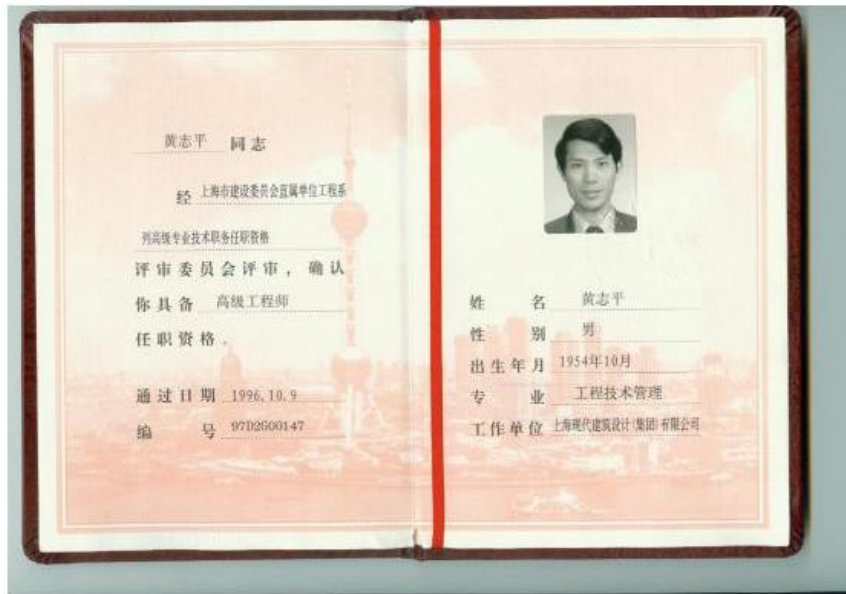 黄志平 同志
经 上海市建设委员会直属单位工程系
列高级专业技术职务任职资格
评审委员会评审，确认
你具备 高级工程师
任职资格.
通过日期 1996.10.9
编 号 97D2G00147
姓 名 黄志平
性 别 男
出生年月 1954年10月
专 业 工程技术管理
工作单位 上海现代建筑设计(集团)有限公司